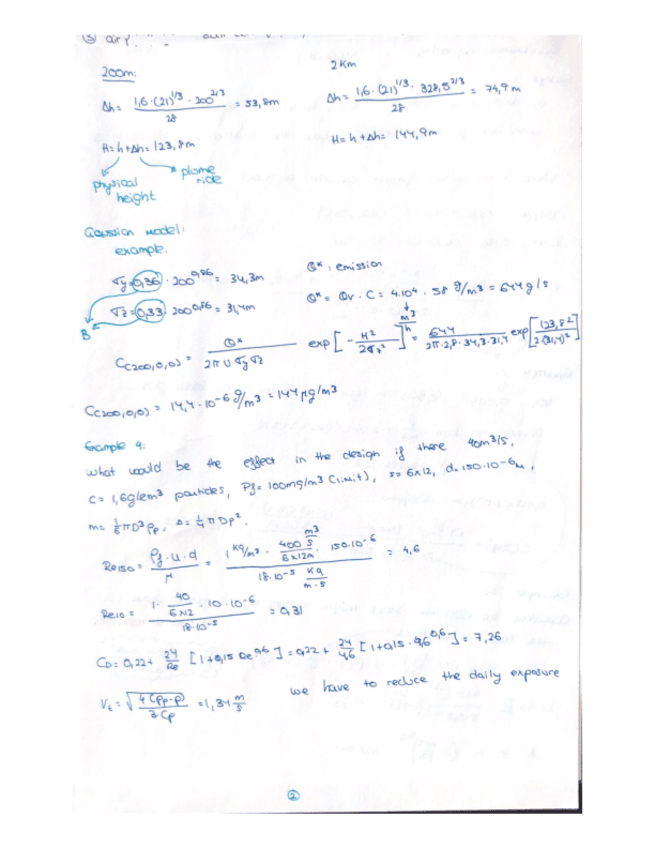 200m:
Δh = 1,6·(21)^1/3 · 200^2/3 / 28 = 53,8m
H = h+Δh = 123,8m
physical height
plume ride
2Km
Δh = 1,6·(21)^1/3 · 328,5^2/3 / 28 = 74,9m
H = h+Δh = 144,9m
Gaussian model:
example.
σy = 0,36 · 200^0,86 = 34,3m
σz = 0,33 · 200^0,86 = 31,4m
B
Q* : emission
Q* = Qv · C = 4·10⁴ · 58 g/m³ = 644 g/s
m³/h
C(200,0,0) = Q* / 2π U σy σz exp[- H² / 2σz²] = 644 / 2π·2,8·34,3·31,4 exp[123,8² / 2·(31,4)²]
C(200,0,0) = 14,4·10⁻⁶ g/m³ = 144 μg/m³
Example 4:
What would be the effect in the design if there 40m³/s,
C = 1,6g/cm³ particles, Pf = 100mg/m³ (limit), s = 6x12, d = 150·10⁻⁶m,
m = 1/6 πD³ρp, A = 1/4 πDp².
Re150 = ρf·u·d / μ = 1 kg/m³ · 400 m³/s / 6x12m · 150·10⁻⁶ / 18·10⁻⁵ kg/m·s = 4,6
Re10 = 1 · 40 / 6x12 · 10·10⁻⁶ / 18·10⁻⁵ = 0,31
CD = 0,22 + 24/Re [1+0,15 Re^0,6] = 0,22 + 24/4,6 [1+0,15 · 4,6^0,6] = 7,26
Vt = √4(ρp-ρ) / 3Cρ = 1,34 m/s
we have to reduce the daily exposure
2